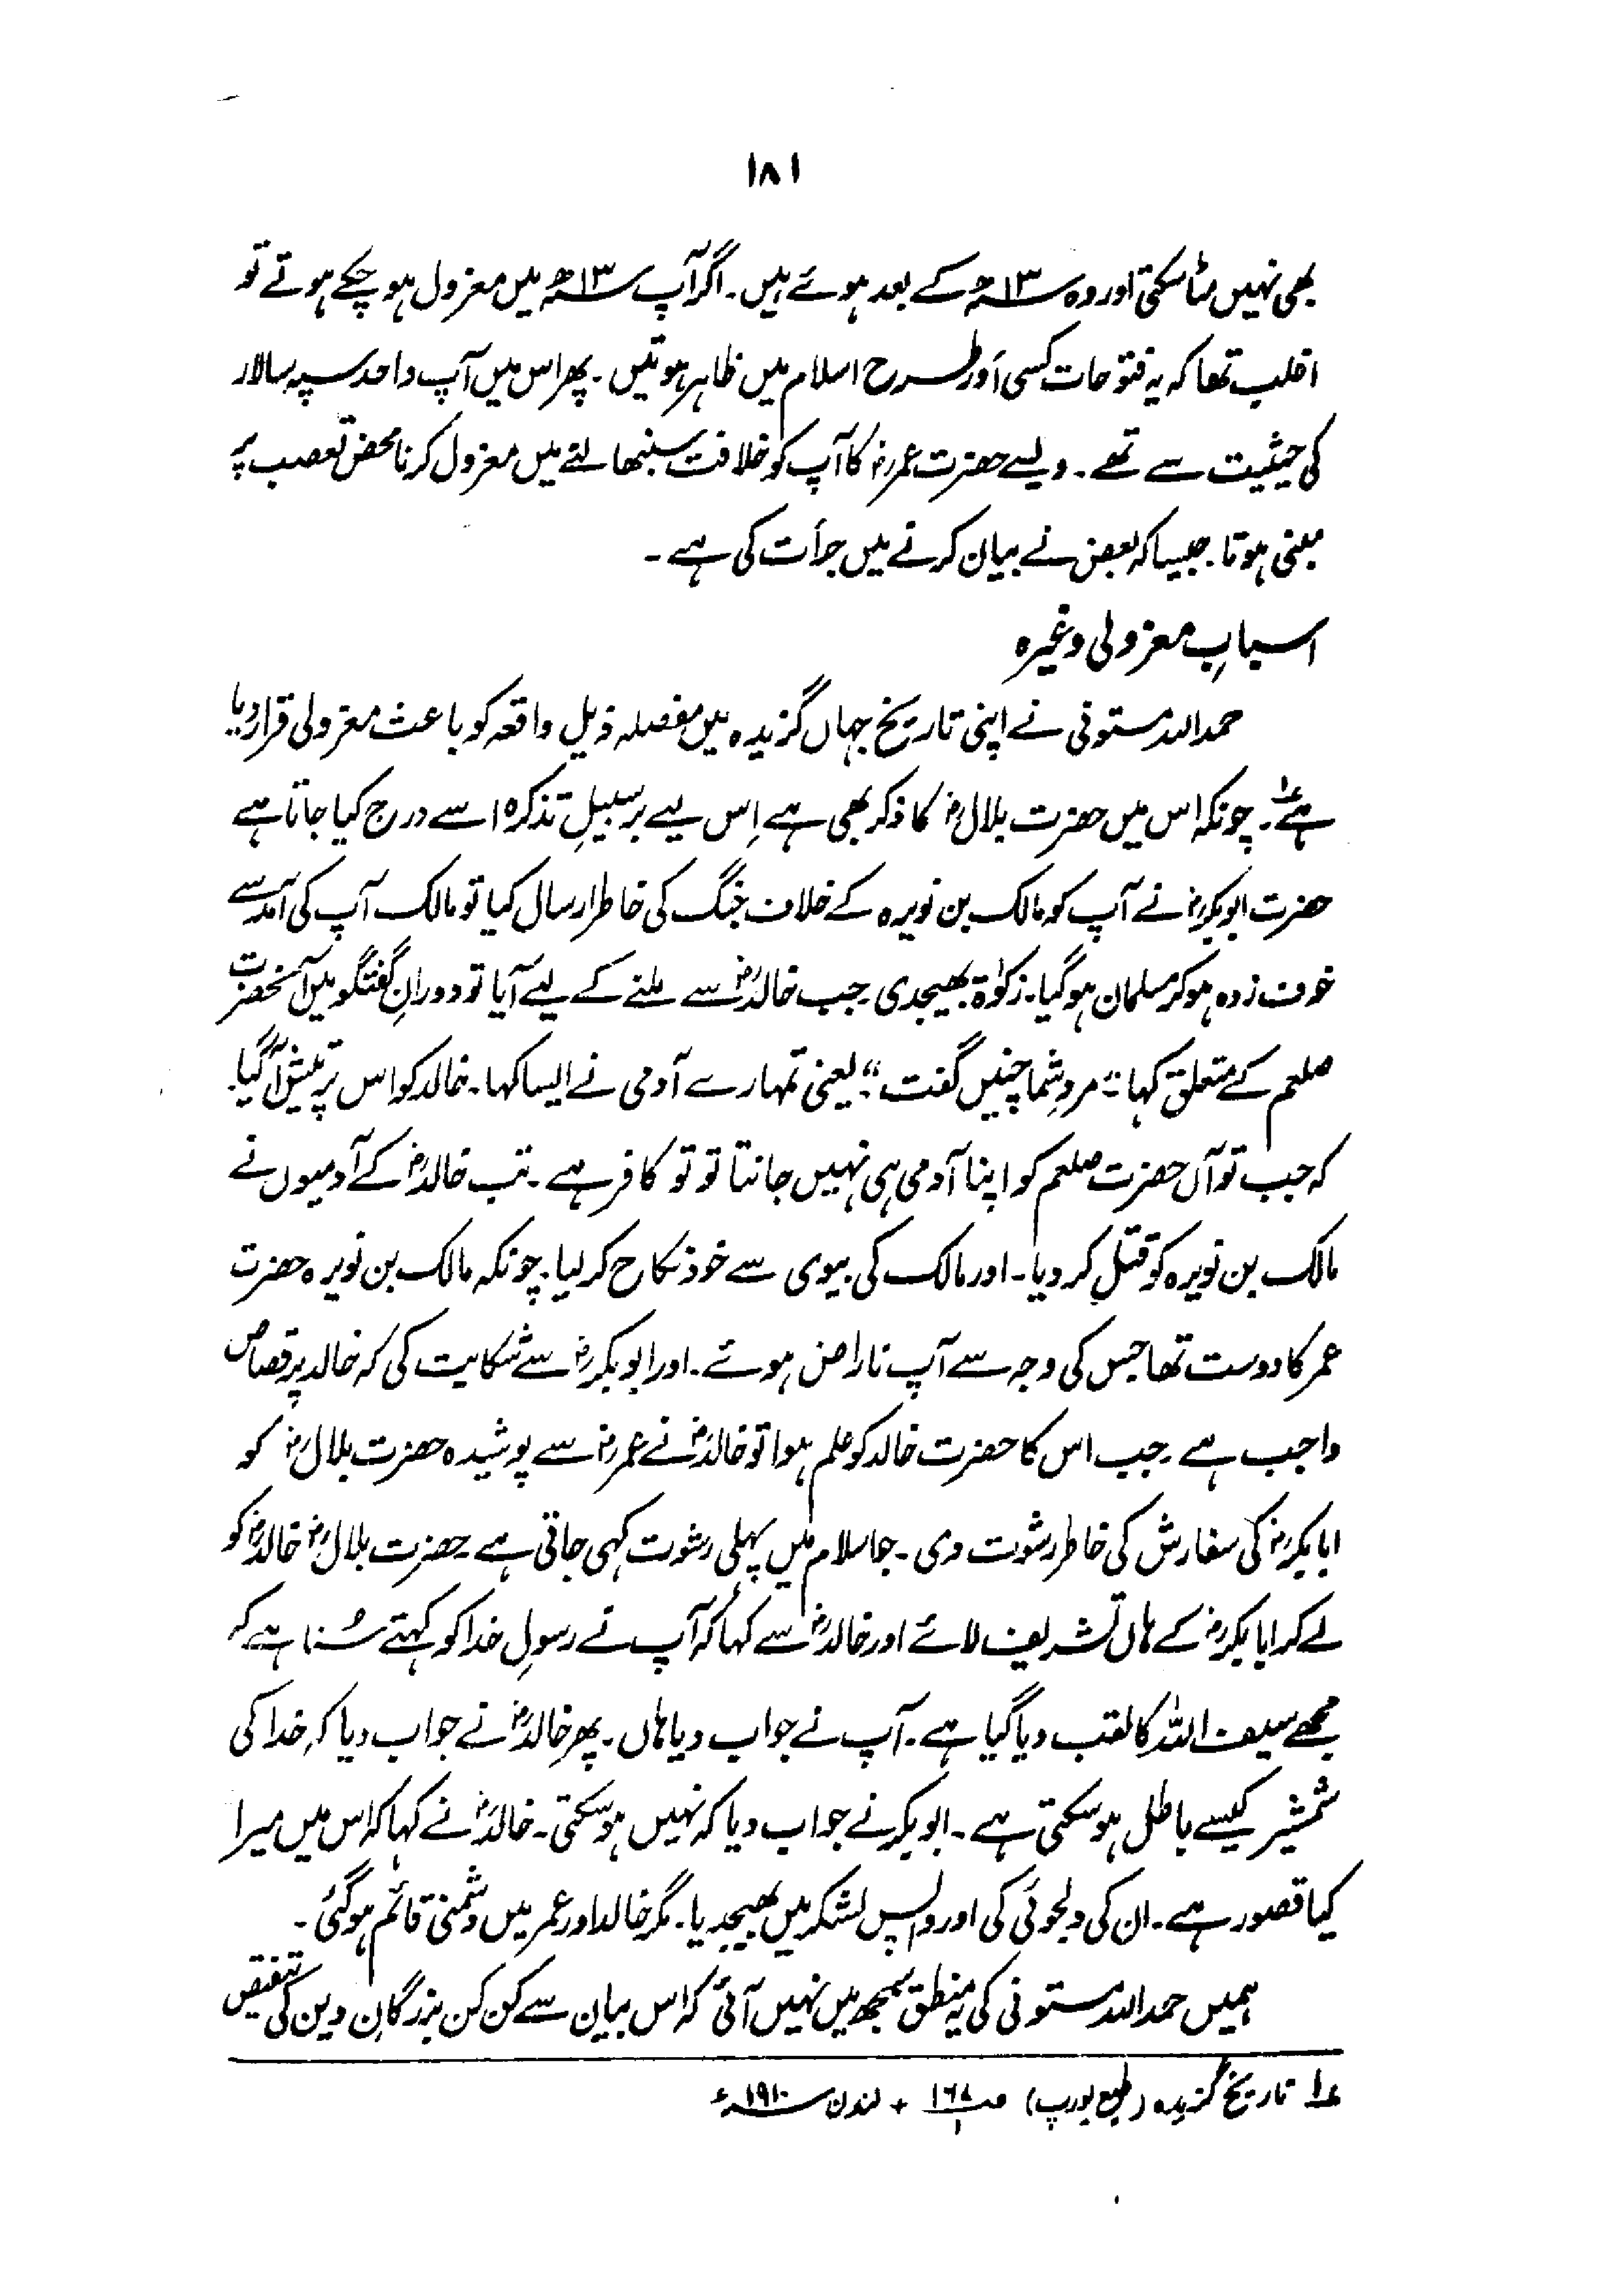 ۱۸۱
بھی نہیں مٹا سکتی اور وہ ۱۳ھ کے بعد ہوئے ہیں۔ اگر آپ ۱۳ھ میں معزول ہو چکے ہوتے تو
اغلب تھا کہ یہ فتوحات کسی اَور طرح اسلام میں ظاہر ہوتیں۔ پھر اس میں آپ واحد سپہ سالار
کی حیثیت سے تھے۔ ویسے حضرت عمرؓ کا آپ کو خلافت سنبھالنے میں معزول کرنا محض تعصب پر
مبنی ہوتا۔ جیسا کہ بعض نے بیان کرنے میں جرأت کی ہے۔
اسبابِ معزولی وغیرہ
حمد اللہ مستوفی نے اپنی تاریخ جہاں گزیدہ میں مفصلہ ذیل واقعہ کو باعث معزولی قرار دیا
ہے۱؎۔ چونکہ اس میں حضرت بلالؓ کا ذکر بھی ہے اِس لیے برسبیلِ تذکرہ اسے درج کیا جاتا ہے
حضرت ابوبکرؓ نے آپ کو مالک بن نویرہ کے خلاف جنگ کی خاطر ارسال کیا تو مالک آپ کی آمد سے
خوف زدہ ہو کر مسلمان ہو گیا۔ زکوٰۃ بھیجدی۔ جب خالدؓ سے ملنے کے لیے آیا تو دورانِ گفتگو میں آنحضرت
صلعم کے متعلق کہا "مردِ شما چنیں گفت" یعنی تمہارے آدمی نے ایسا کہا۔ خالد کو اس پر طیش آ گیا۔
کہ جب تو آں حضرت صلعم کو اپنا آدمی ہی نہیں جانتا تو تو کافر ہے۔ تب خالدؓ کے آدمیوں نے
مالک بن نویرہ کو قتل کر دیا۔ اور مالک کی بیوی سے خود نکاح کر لیا۔ چونکہ مالک بن نویرہ حضرت
عمر کا دوست تھا جس کی وجہ سے آپ ناراض ہوئے۔ اور ابوبکرؓ سے شکایت کی کہ خالد پر قصاص
واجب ہے۔ جب اس کا حضرت خالد کو علم ہوا تو خالدؓ نے عمرؓ سے پوشیدہ حضرت بلالؓ کو
ابابکرؓ کی سفارش کی خاطر رشوت دی۔ جو اسلام میں پہلی رشوت کہی جاتی ہے۔ حضرت بلالؓ خالدؓ کو
لے کر ابابکرؓ کے ہاں تشریف لائے اور خالدؓ سے کہا کہ آپ نے رسولِ خدا کو کہتے سُنا ہے کہ
مجھے سیف اللہ کا لقب دیا گیا ہے۔ آپ نے جواب دیا ہاں۔ پھر خالدؓ نے جواب دیا کہ خدا کی
شمشیر کیسے باطل ہو سکتی ہے۔ ابوبکر نے جواب دیا کہ نہیں ہو سکتی۔ خالدؓ نے کہا کہ اس میں میرا
کیا قصور ہے۔ ان کی دلجوئی کی اور واپس لشکر میں بھیجدیا۔ مگر خالد اور عمر میں دشمنی قائم ہو گئی۔
ہمیں حمد اللہ مستوفی کی یہ منطق سمجھ میں نہیں آئی کہ اس بیان سے کن کن بزرگانِ دین کی تنقیص
۱؎ تاریخ گزیدہ (طبع یورپ) ص ۱۶۸/۱ + لندن ۱۹۱۰ء